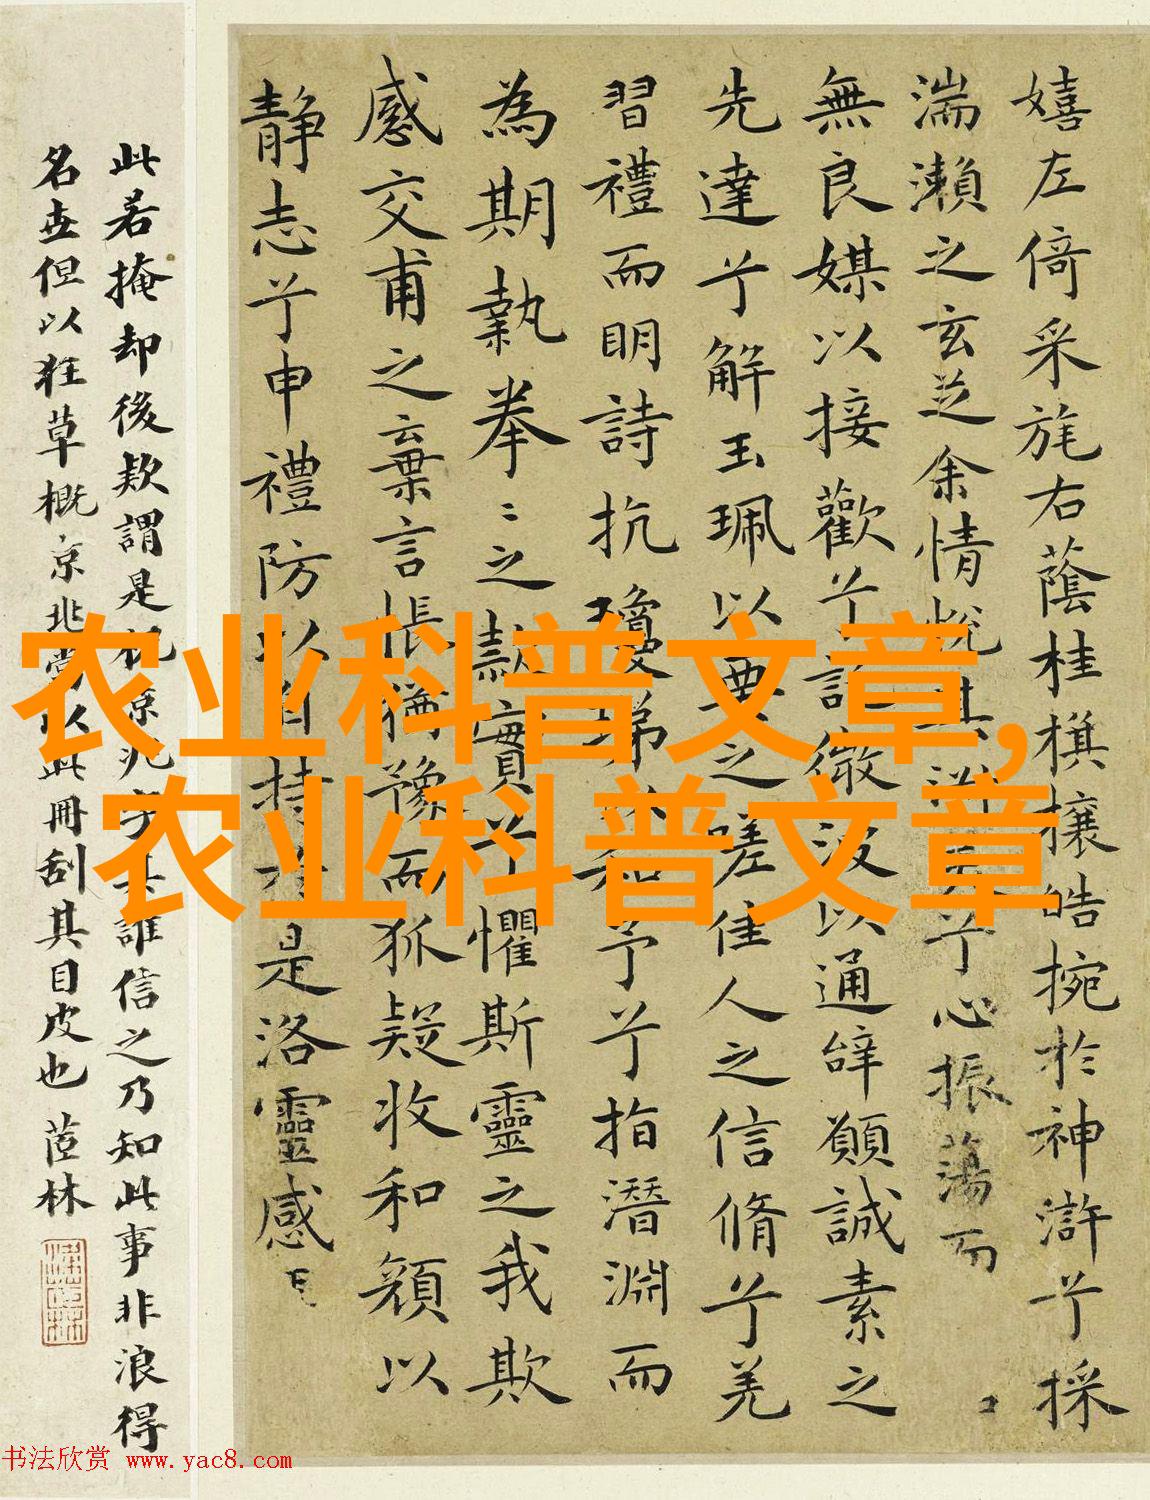 嬉左倚采旄右蔭桂旗攘皓捥於神滸兮採
湍瀨之玄芝余情悅其淑美兮心振蕩而
無良媒以接歡兮託微波以通辭願誠素之
先達兮解玉珮以要之嗟佳人之信脩兮羌
習禮而明詩抗瓊珶以和予兮指潛淵而
為期執拳〻之款實兮懼斯靈之我欺
感交甫之棄言悵猶豫而狐疑收和顏以
靜志兮申禮防以自持於是洛靈感
此若掩却後款謂是祝京兆字其誰信之乃知此事非浪得
名世但以狂草概京兆當以此冊刮其目皮也 茝林
农业科普文章,
农业科普文章
书法欣赏 www.yac8.com